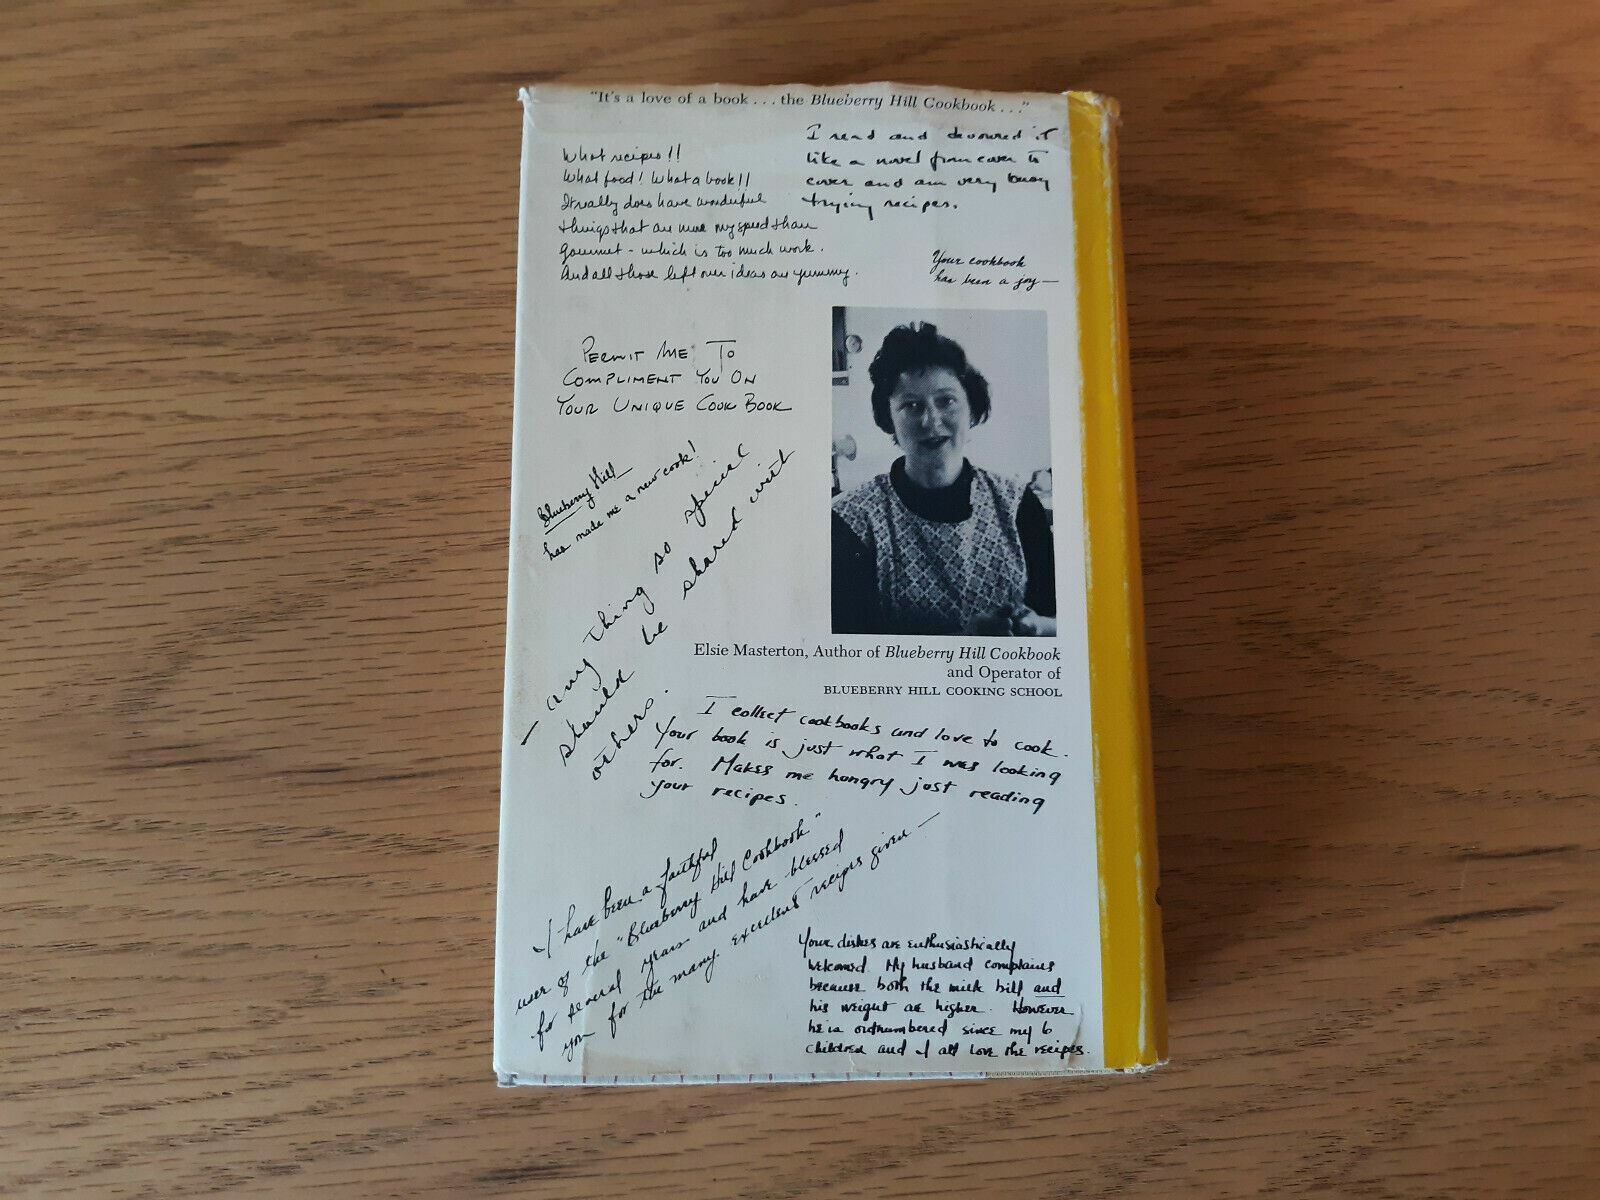 "It's a love of a book . . . the Blueberry Hill Cookbook . . ."
What recipes!!
What food! What a book!!
It really does have wonderful
things that are more my speed than
gourmet - which is too much work.
And all those left over ideas are yummy.
I read and devoured it
like a novel from cover to
cover and am very busy
trying recipes.
Your cookbook
has been a joy—
PERMIT ME TO
COMPLIMENT YOU ON
YOUR UNIQUE COOK BOOK
Blueberry Hill—
has made me a new cook!
— any thing so special
should be shared with
others.
Elsie Masterton, Author of Blueberry Hill Cookbook
and Operator of
BLUEBERRY HILL COOKING SCHOOL
I collect cookbooks and love to cook.
Your book is just what I was looking
for. Makes me hungry just reading
your recipes.
I have been a faithful
user of the "Blueberry Hill Cookbook"
for several years and have blessed
you for the many excellent recipes given—
Your dishes are enthusiastically
welcomed. My husband complains
because both the milk bill and
his weight are higher. However
he is outnumbered since my 6
children and I all love the recipes.